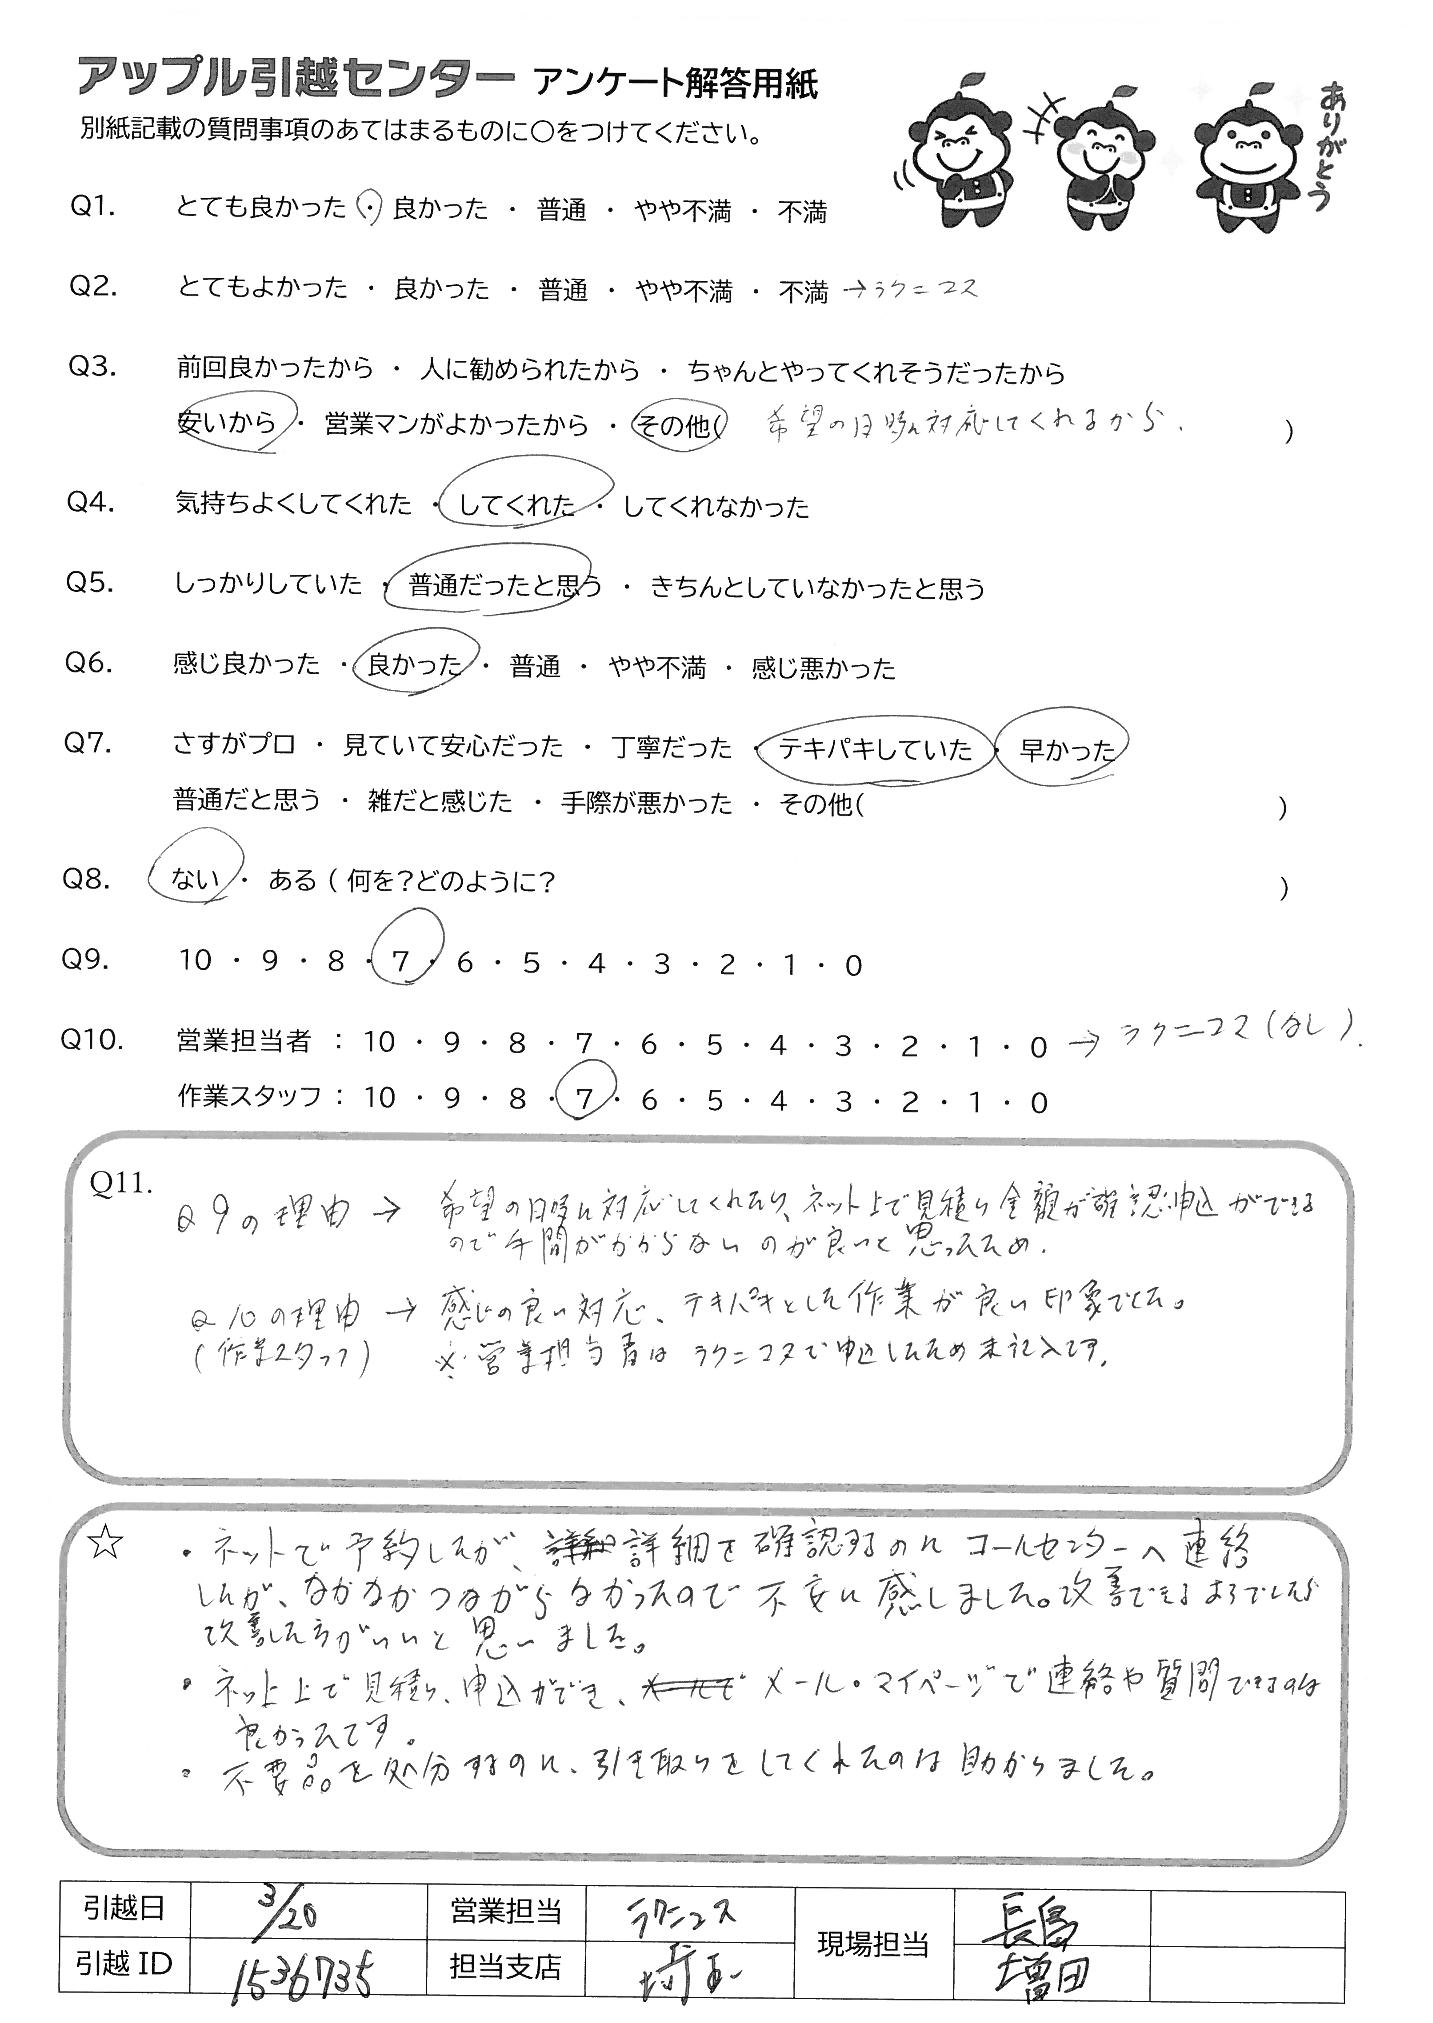 アップル引越センター アンケート解答用紙
ありがとう
別紙記載の質問事項のあてはまるものに〇をつけてください。
Q1. とても良かった ・ 良かった ・ 普通 ・ やや不満 ・ 不満
Q2. とてもよかった ・ 良かった ・ 普通 ・ やや不満 ・ 不満 →ラクニコス
Q3. 前回良かったから ・ 人に勧められたから ・ ちゃんとやってくれそうだったから
安いから ・ 営業マンがよかったから ・ その他( 希望の日時に対応してくれるから. )
Q4. 気持ちよくしてくれた ・ してくれた ・ してくれなかった
Q5. しっかりしていた ・ 普通だったと思う ・ きちんとしていなかったと思う
Q6. 感じ良かった ・ 良かった ・ 普通 ・ やや不満 ・ 感じ悪かった
Q7. さすがプロ ・ 見ていて安心だった ・ 丁寧だった ・ テキパキしていた ・ 早かった
普通だと思う ・ 雑だと感じた ・ 手際が悪かった ・ その他( )
Q8. ない ・ ある ( 何を?どのように? )
Q9. 10 ・ 9 ・ 8 ・ 7 ・ 6 ・ 5 ・ 4 ・ 3 ・ 2 ・ 1 ・ 0
Q10. 営業担当者 : 10 ・ 9 ・ 8 ・ 7 ・ 6 ・ 5 ・ 4 ・ 3 ・ 2 ・ 1 ・ 0 → ラクニコス(なし).
作業スタッフ : 10 ・ 9 ・ 8 ・ 7 ・ 6 ・ 5 ・ 4 ・ 3 ・ 2 ・ 1 ・ 0
Q11.
Q9の理由 → 希望の日時に対応してくれたり、ネット上で見積り金額が確認・申込ができる
ので手間がかからないのが良いと思ったため.
Q10の理由 → 感じの良い対応、テキパキとした作業が良い印象でした。
(作業スタッフ) ※営業担当者はラクニコスで申込したため未記入です.
☆ ・ネットで予約したが、詳細を確認するのにコールセンターへ連絡
したが、なかなかつながらなかったので不安に感じました。改善できるようでしたら
改善した方がいいと思いました。
・ネット上で見積り、申込ができ、メール・マイページで連絡や質問できるのは
良かったです。
・不要品を処分するのに、引き取りをしてくれたのは助かりました。
引越日 3/20 営業担当 ラクニコス 現場担当 長島
引越 ID 1536735 担当支店 埼玉 増田